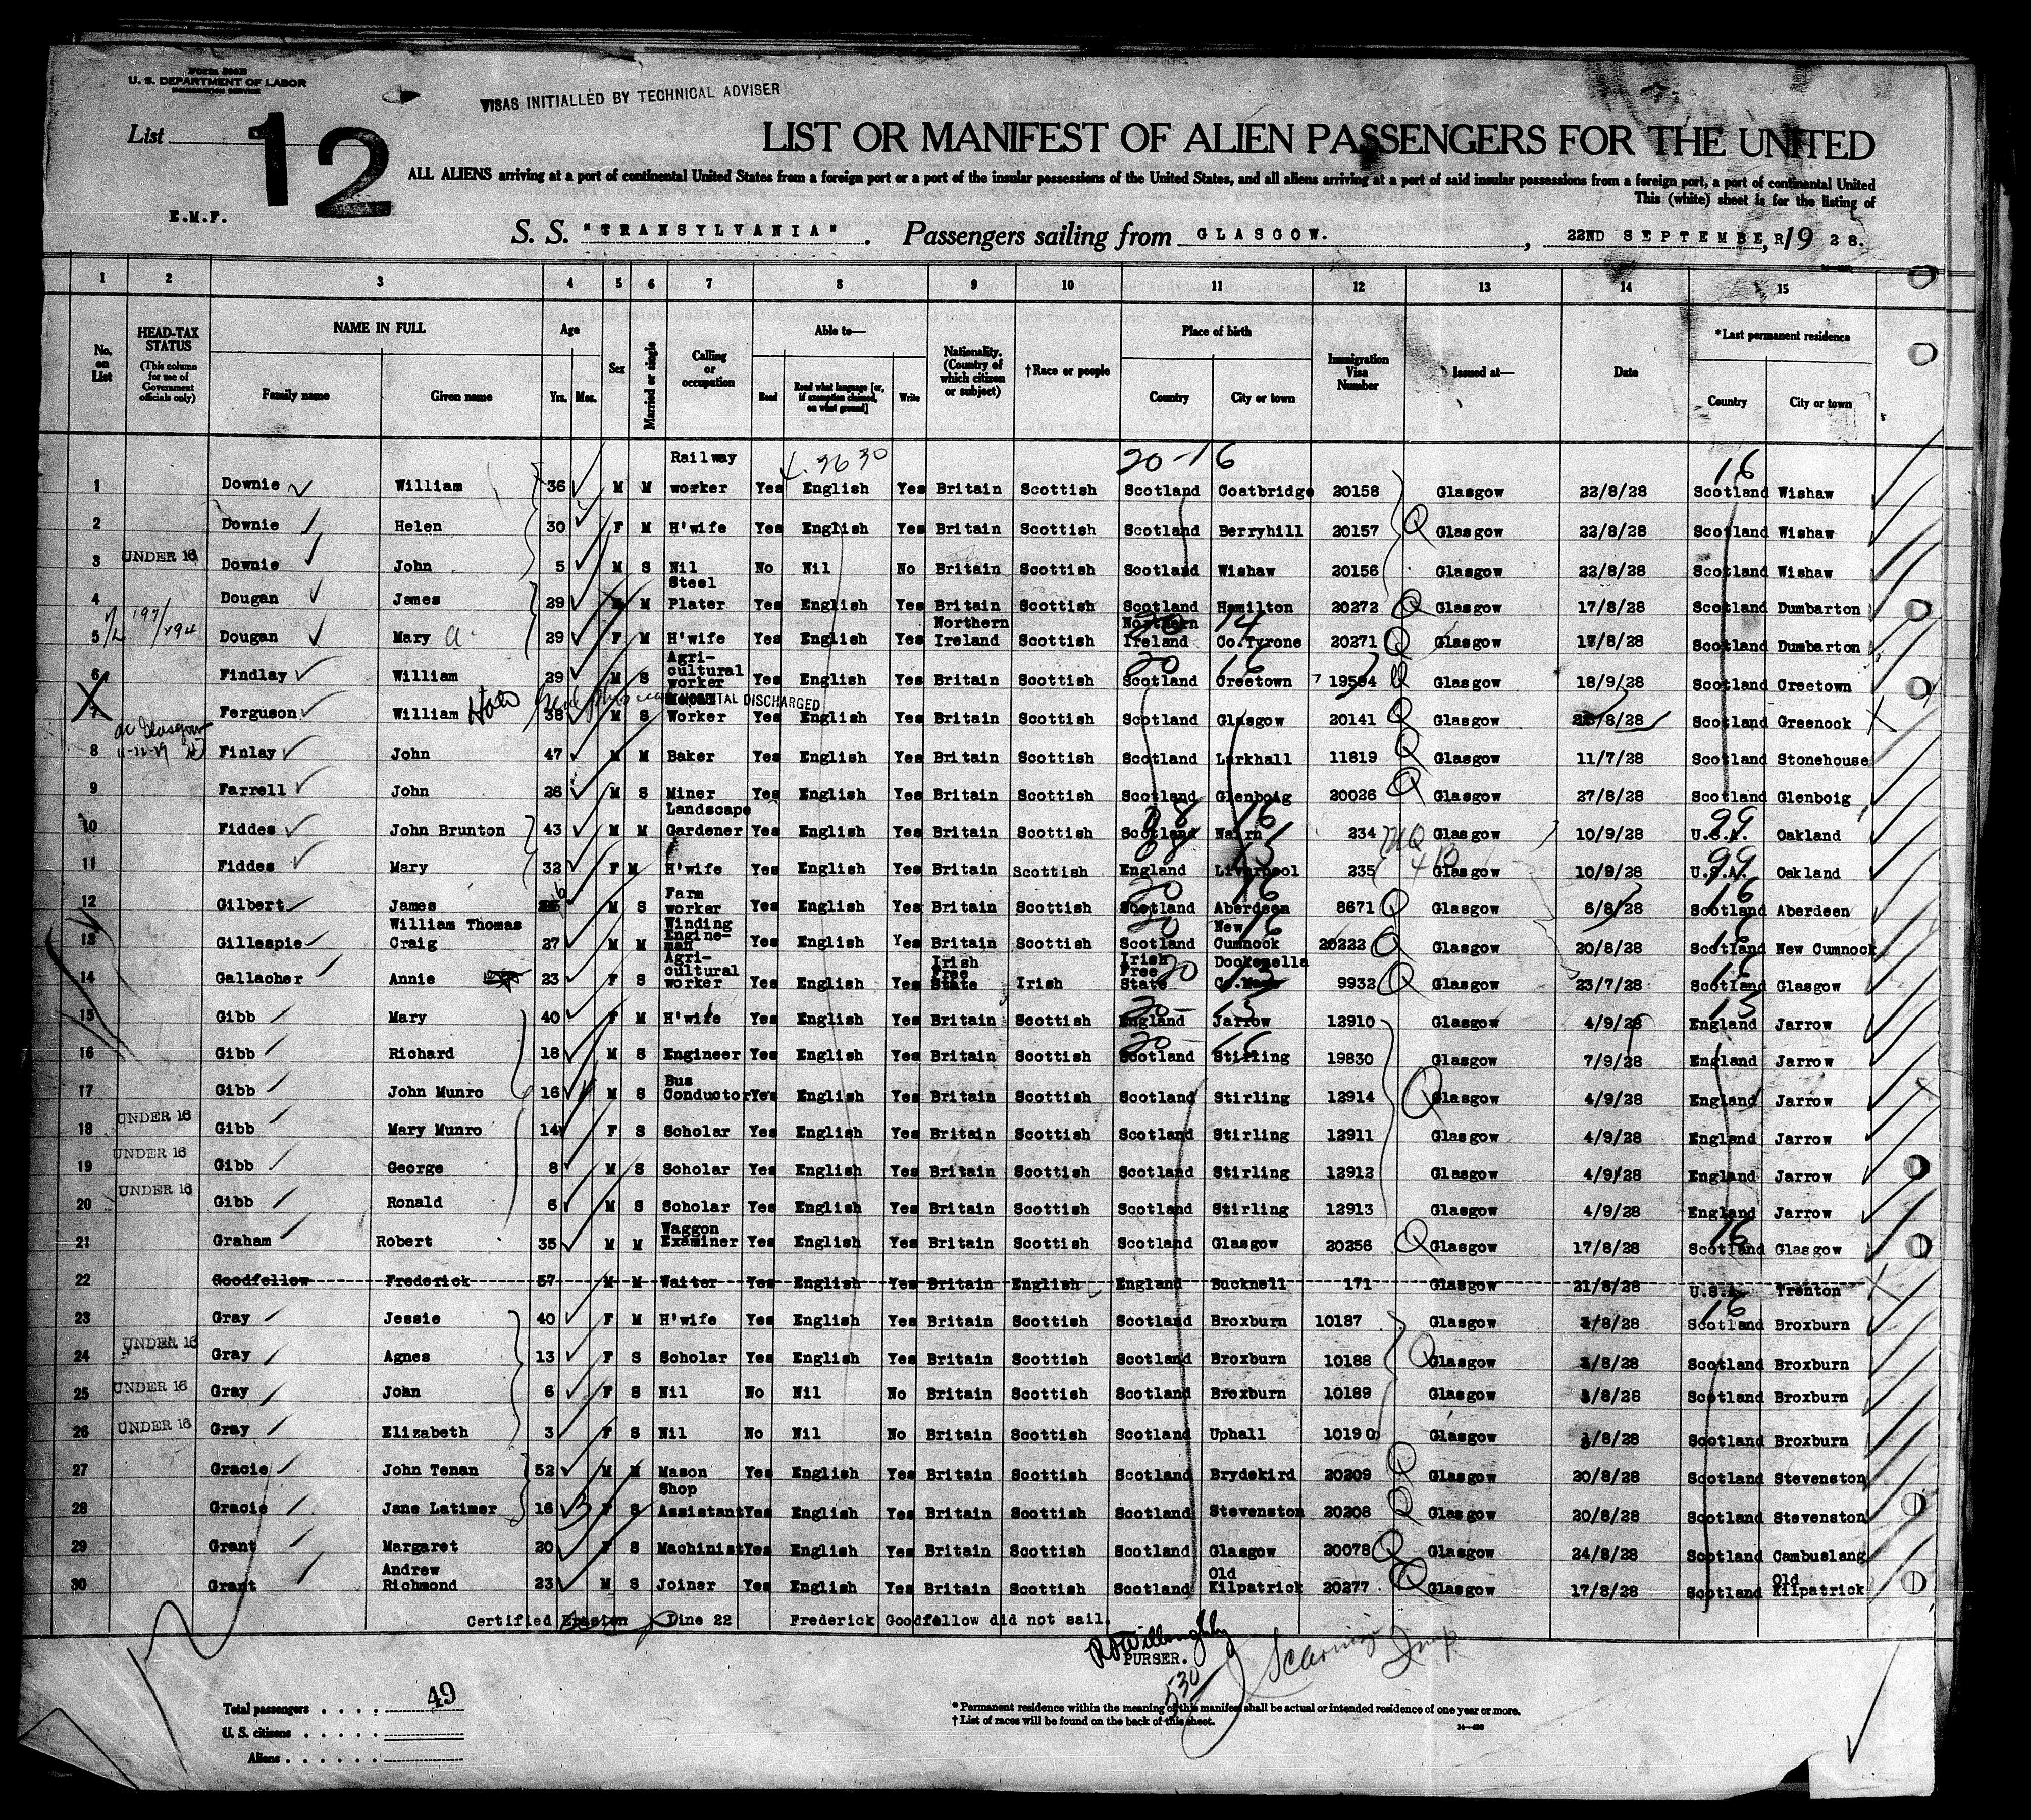 Form 500B
U. S. DEPARTMENT OF LABOR
IMMIGRATION SERVICE
VISAS INITIALLED BY TECHNICAL ADVISER
List 12
LIST OR MANIFEST OF ALIEN PASSENGERS FOR THE UNITED
ALL ALIENS arriving at a port of continental United States from a foreign port or a port of the insular possessions of the United States, and all aliens arriving at a port of said insular possessions from a foreign port, a port of continental United
This (white) sheet is for the listing of
E.M.F.
S. S. "TRANSYLVANIA". Passengers sailing from GLASGOW., 22ND SEPTEMBER, 1928.
1 2 3 4 5 6 7 8 9 10 11 12 13 14 15
No. on List
HEAD-TAX STATUS (This column for use of Government officials only)
NAME IN FULL Family name Given name
Age Yrs. Mos.
Sex
Married or single
Calling or occupation
Able to— Read Read what language [or, if exemption claimed, on what ground] Write
Nationality. (Country of which citizen or subject)
†Race or people
Place of birth Country City or town
Immigration Visa Number
Issued at—
Date
*Last permanent residence Country City or town
20-16 16
1 Downie William 36 M M Railway worker Yes English Yes Britain Scottish Scotland Coatbridge 20158 Glasgow 22/8/28 Scotland Wishaw
2 Downie Helen 30 F M H'wife Yes English Yes Britain Scottish Scotland Berryhill 20157 Q Glasgow 22/8/28 Scotland Wishaw
3 UNDER 16 Downie John 5 M S Nil No Nil No Britain Scottish Scotland Wishaw 20156 Glasgow 22/8/28 Scotland Wishaw
4 Dougan James 29 M M Steel Plater Yes English Yes Britain Scottish Scotland Hamilton 20272 Q Glasgow 17/8/28 Scotland Dumbarton
5 Dougan Mary a 29 F M H'wife Yes English Yes Northern Ireland Scottish Northern Ireland 20 14 Co.Tyrone 20271 Q Glasgow 17/8/28 Scotland Dumbarton
6 Findlay William 29 M S Agri-cultural worker Yes English Yes Britain Scottish 20 16 Scotland Creetown 19594 Glasgow 18/9/28 Scotland Creetown
HOSPITAL DISCHARGED
7 Ferguson William 38 M S Worker Yes English Yes Britain Scottish Scotland Glasgow 20141 Q Glasgow /8/28 Scotland Greenock
8 Finlay John 47 M M Baker Yes English Yes Britain Scottish Scotland Larkhall 11819 Q Glasgow 11/7/28 Scotland Stonehouse
9 Farrell John 26 M S Miner Yes English Yes Britain Scottish Scotland Glenboig 20026 Q Glasgow 27/8/28 Scotland Glenboig
10 Fiddes John Brunton 43 M M Landscape Gardener Yes English Yes Britain Scottish 08 16 Scotland Nairn 234 Glasgow 10/9/28 99 U.S.A. Oakland
11 Fiddes Mary 32 F M H'wife Yes English Yes Britain Scottish 08 15 England Liverpool 235 Glasgow 10/9/28 99 U.S.A. Oakland
12 Gilbert James M S Farm worker Yes English Yes Britain Scottish 20 16 Scotland Aberdeen 8671 Q Glasgow 6/8/28 16 Scotland Aberdeen
13 Gillespie William Thomas Craig 27 M M Winding Engine-man Yes English Yes Britain Scottish 20 16 Scotland New Cumnock 20222 Q Glasgow 20/8/28 16 Scotland New Cumnock
14 Gallacher Annie 23 F S Agri-cultural worker Yes English Yes Irish Free State Irish Irish Free State 20 13 Co. 9932 Q Glasgow 23/7/28 16 Scotland Glasgow
15 Gibb Mary 40 F M H'wife Yes English Yes Britain Scottish 20-15 England Jarrow 12910 Glasgow 4/9/28 15 England Jarrow
16 Gibb Richard 18 M S Engineer Yes English Yes Britain Scottish 20-16 Scotland Stirling 19830 Glasgow 7/9/28 England Jarrow
17 Gibb John Munro 16 M S Bus Conductor Yes English Yes Britain Scottish Scotland Stirling 12914 Q Glasgow 4/9/28 England Jarrow
18 UNDER 16 Gibb Mary Munro 14 F S Scholar Yes English Yes Britain Scottish Scotland Stirling 12911 Glasgow 4/9/28 England Jarrow
19 UNDER 16 Gibb George 8 M S Scholar Yes English Yes Britain Scottish Scotland Stirling 12912 Glasgow 4/9/28 England Jarrow
20 UNDER 16 Gibb Ronald 6 M S Scholar Yes English Yes Britain Scottish Scotland Stirling 12913 Glasgow 4/9/28 England Jarrow
21 Graham Robert 35 M M Waggon Examiner Yes English Yes Britain Scottish Scotland Glasgow 20256 Q Glasgow 17/8/28 16 Scotland Glasgow
22 Goodfellow Frederick 57 M M Waiter Yes English Yes Britain English England Bucknell 171 Glasgow 21/8/28 U.S.A. Trenton
23 Gray Jessie 40 F M H'wife Yes English Yes Britain Scottish Scotland Broxburn 10187 Glasgow /8/28 16 Scotland Broxburn
24 UNDER 16 Gray Agnes 13 F S Scholar Yes English Yes Britain Scottish Scotland Broxburn 10188 Q Glasgow /8/28 Scotland Broxburn
25 UNDER 16 Gray John 6 F S Nil No Nil No Britain Scottish Scotland Broxburn 10189 Glasgow /8/28 Scotland Broxburn
26 UNDER 16 Gray Elizabeth 3 F S Nil No Nil No Britain Scottish Scotland Uphall 10190 Glasgow /8/28 Scotland Broxburn
27 Gracie John Tenan 52 M M Mason Yes English Yes Britain Scottish Scotland Brydekird 20209 Q Glasgow 20/8/28 Scotland Stevenston
28 Gracie Jane Latimer 16 3 F S Shop Assistant Yes English Yes Britain Scottish Scotland Stevenston 20208 Q Glasgow 20/8/28 Scotland Stevenston
29 Grant Margaret 20 F S Machinist Yes English Yes Britain Scottish Scotland Glasgow 20078 Q Glasgow 24/8/28 Scotland Cambuslang
30 Grant Andrew Richmond 23 M S Joiner Yes English Yes Britain Scottish Scotland Old Kilpatrick 20277 Q Glasgow 17/8/28 Scotland Old Kilpatrick
Certified Erasion Line 22 Frederick Goodfellow did not sail.
PURSER.
530
Total passengers 49
U. S. citizens
Aliens
* Permanent residence within the meaning of this manifest shall be actual or intended residence of one year or more.
† List of races will be found on the back of this sheet.